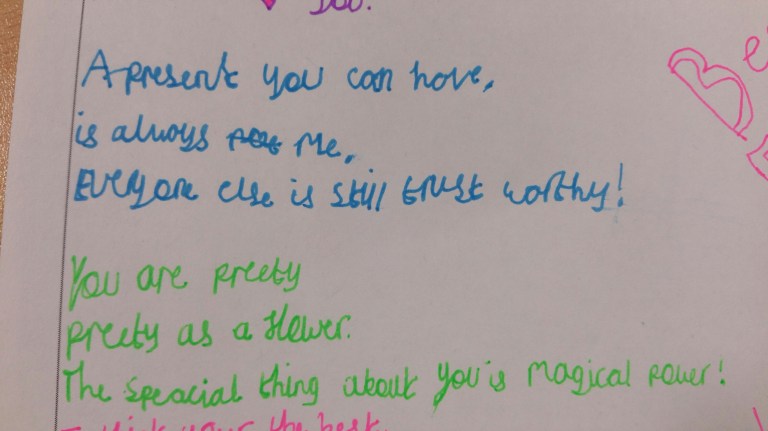 you.
A present you can have,
is always me,
Everyone else is still trust worthy!
You are preety
preety as a flower.
The speacial thing about you is magical power!
I think your the best.
Be